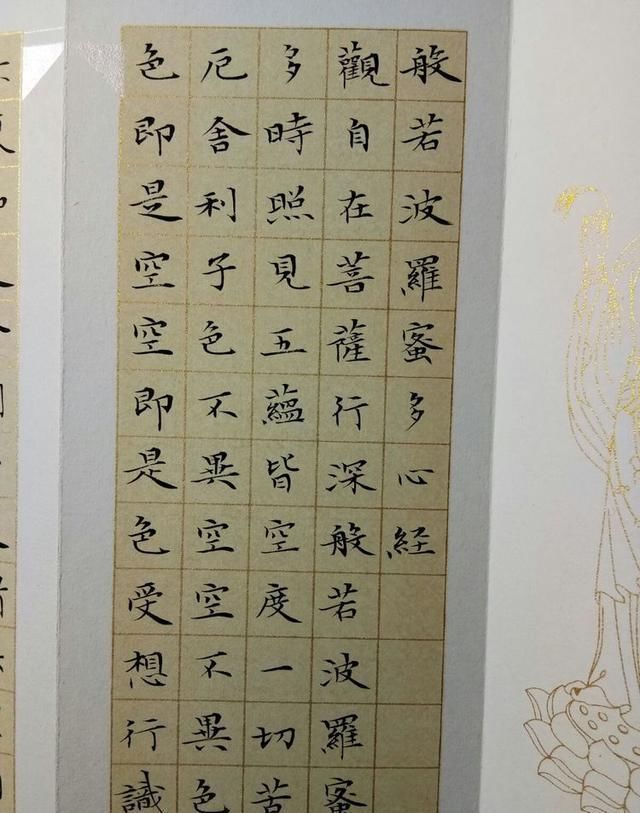 般若波羅蜜多心経
觀自在菩薩行深般若波羅蜜
多時照見五蘊皆空度一切苦
厄舍利子色不異空空不異色
色即是空空即是色受想行識